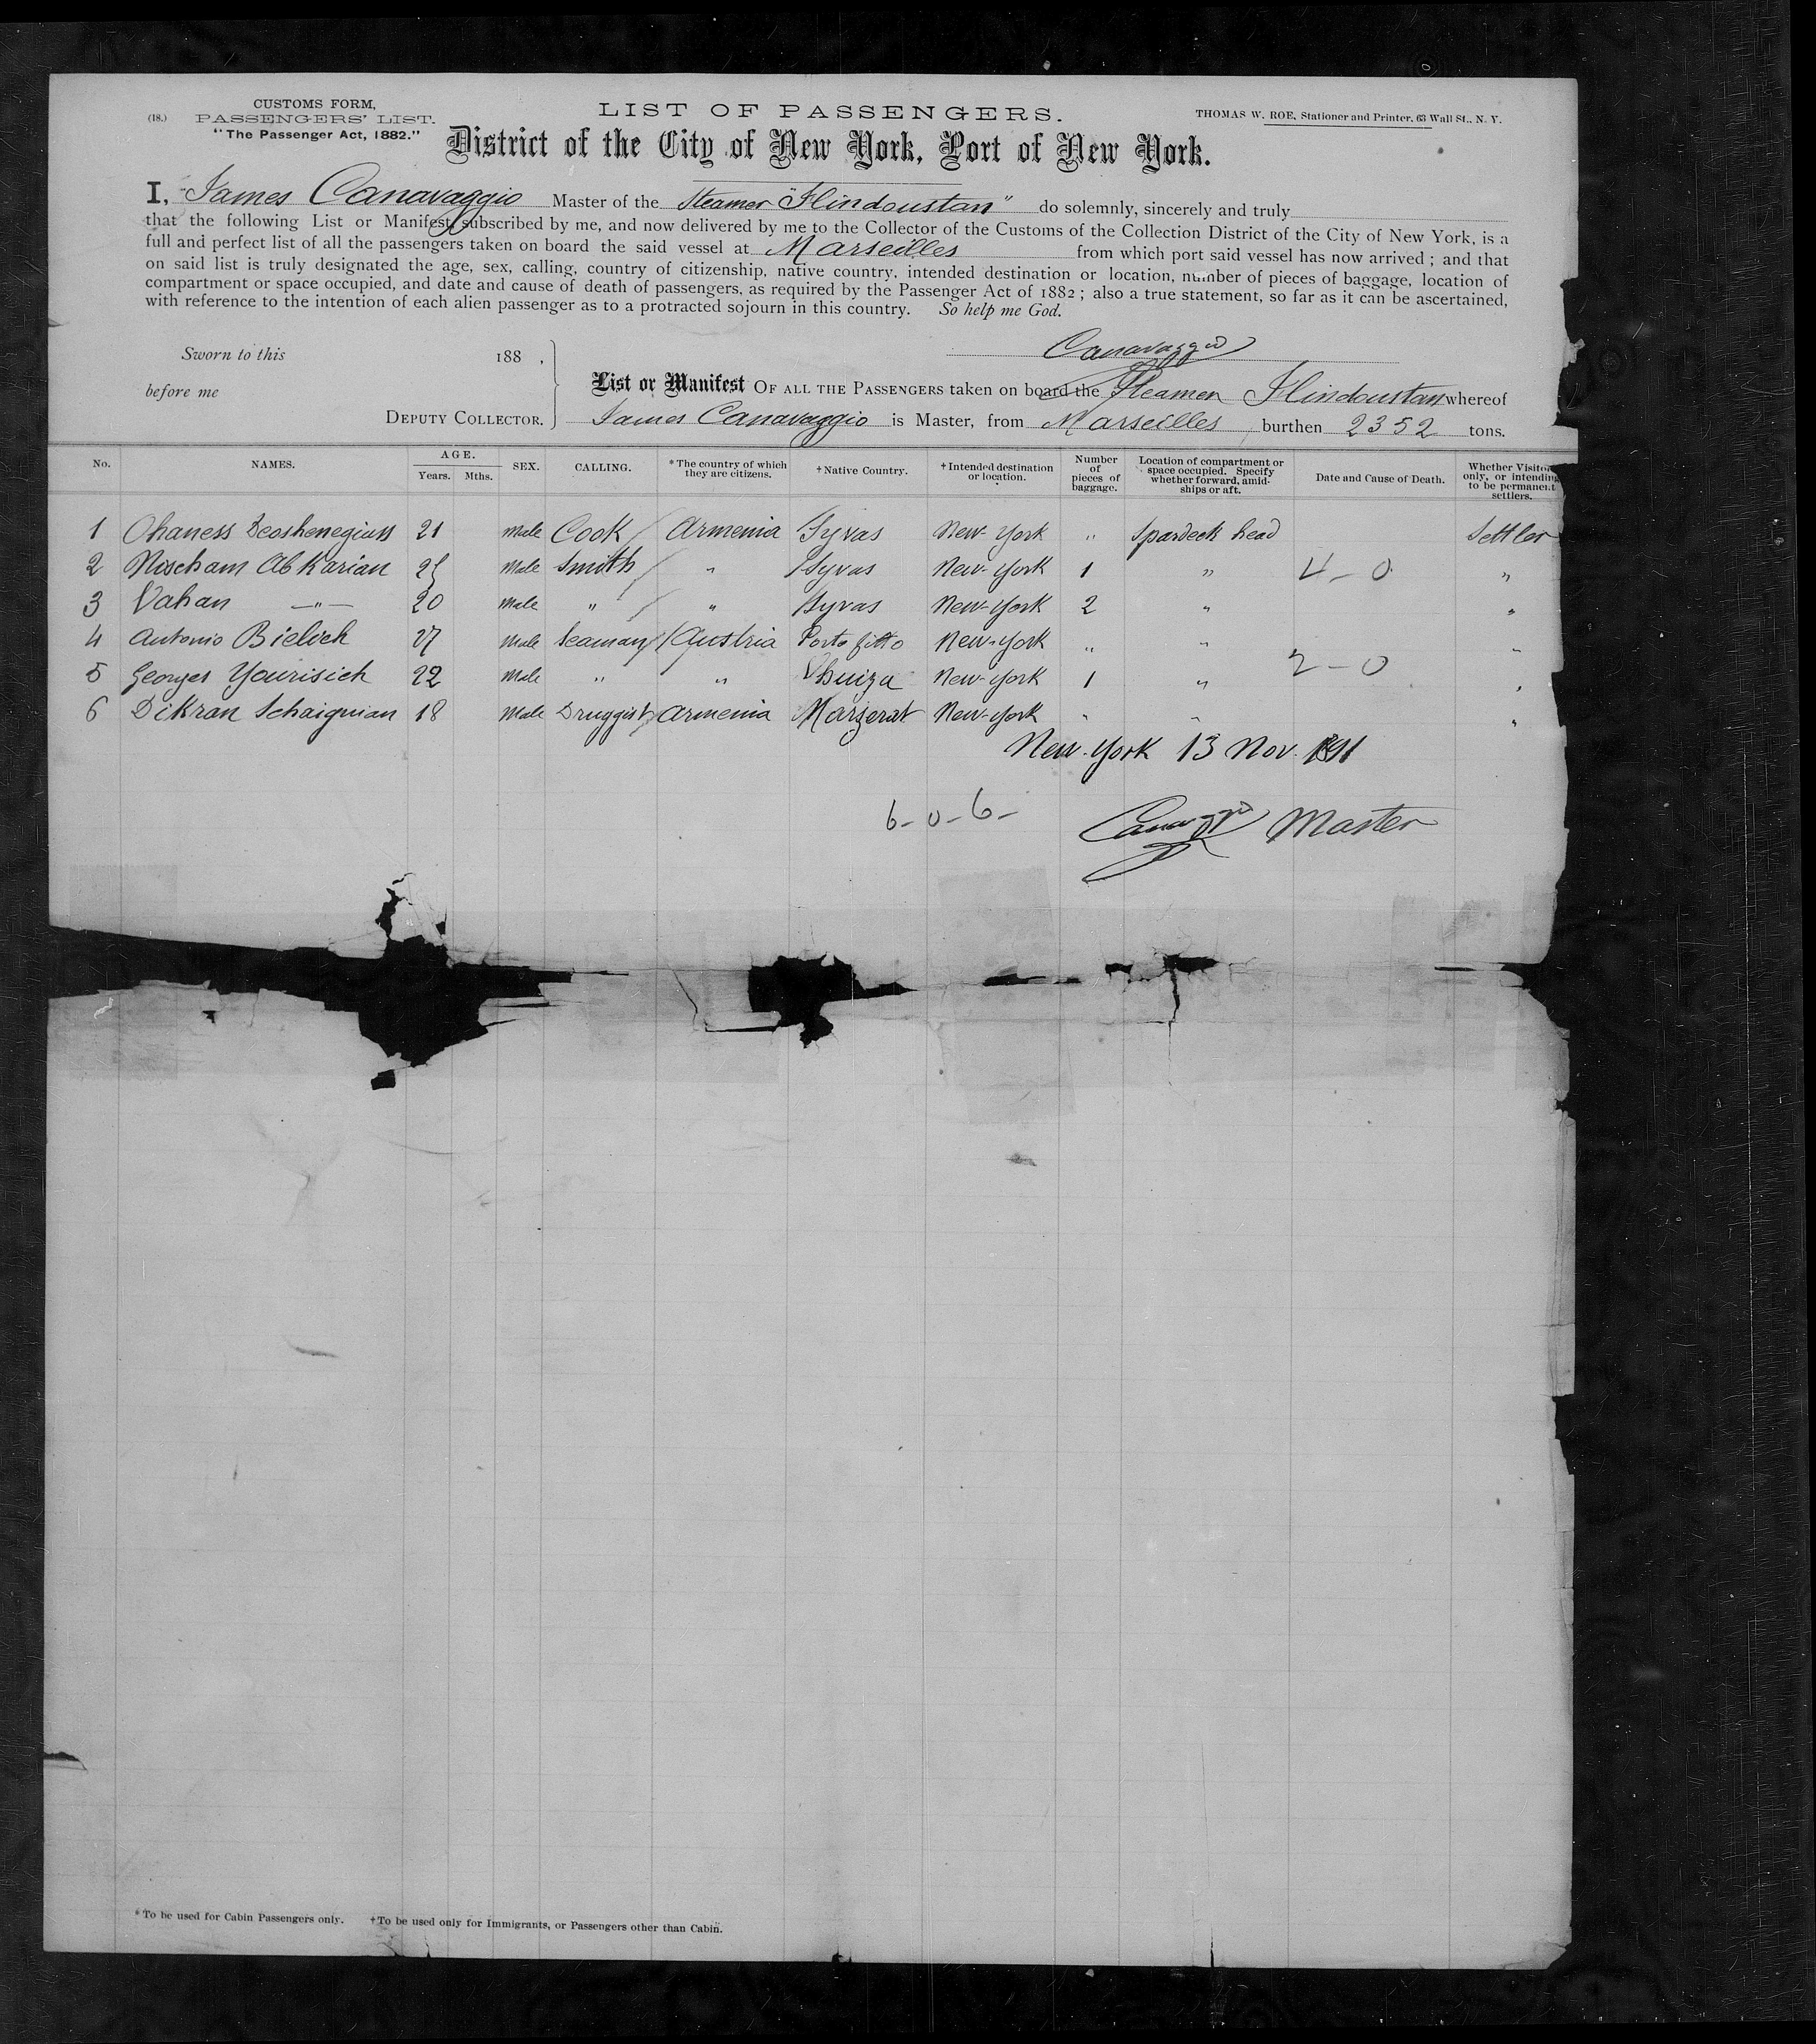 (18.)
CUSTOMS FORM,
PASSENGERS' LIST.
"The Passenger Act, 1882."
LIST OF PASSENGERS.
THOMAS W. ROE, Stationer and Printer, 63 Wall St., N. Y.
District of the City of New York, Port of New York.
I, James Canavaggio Master of the Steamer "Hindoustan" do solemnly, sincerely and truly
that the following List or Manifest, subscribed by me, and now delivered by me to the Collector of the Customs of the Collection District of the City of New York, is a
full and perfect list of all the passengers taken on board the said vessel at Marseilles from which port said vessel has now arrived; and that
on said list is truly designated the age, sex, calling, country of citizenship, native country, intended destination or location, number of pieces of baggage, location of
compartment or space occupied, and date and cause of death of passengers, as required by the Passenger Act of 1882; also a true statement, so far as it can be ascertained,
with reference to the intention of each alien passenger as to a protracted sojourn in this country. So help me God.
Canavaggio
Sworn to this 188 .
before me
DEPUTY COLLECTOR.
List or Manifest OF ALL THE PASSENGERS taken on board the Steamer Hindoustan whereof
James Canavaggio is Master, from Marseilles burthen 2352 tons.
No. NAMES. AGE. Years. Mths. SEX. CALLING. *The country of which they are citizens. †Native Country. †Intended destination or location. Number of pieces of baggage. Location of compartment or space occupied. Specify whether forward, amidships or aft. Date and Cause of Death. Whether Visitors only, or intending to be permanent settlers.
1 Ohaness 21 Male Cook Armenia Syvas New-York " Spardeck head Settler
2 Mischam Abkarian 25 Male Smith " Syvas New-York 1 " 4-0 "
3 Vahan —"— 20 Male " " Syvas New-York 2 " "
4 Antonio Bielich 27 Male Seaman Austria Porto New-York " " "
5 Georges Yourisich 22 Male " " New-York 1 " 2-0 "
6 Dikran Schaignian 18 Male Druggist Armenia New-York " " "
New-York 13 Nov. 1891
6-0-6-
Canavaggio Master
*To be used for Cabin Passengers only. †To be used only for Immigrants, or Passengers other than Cabin.